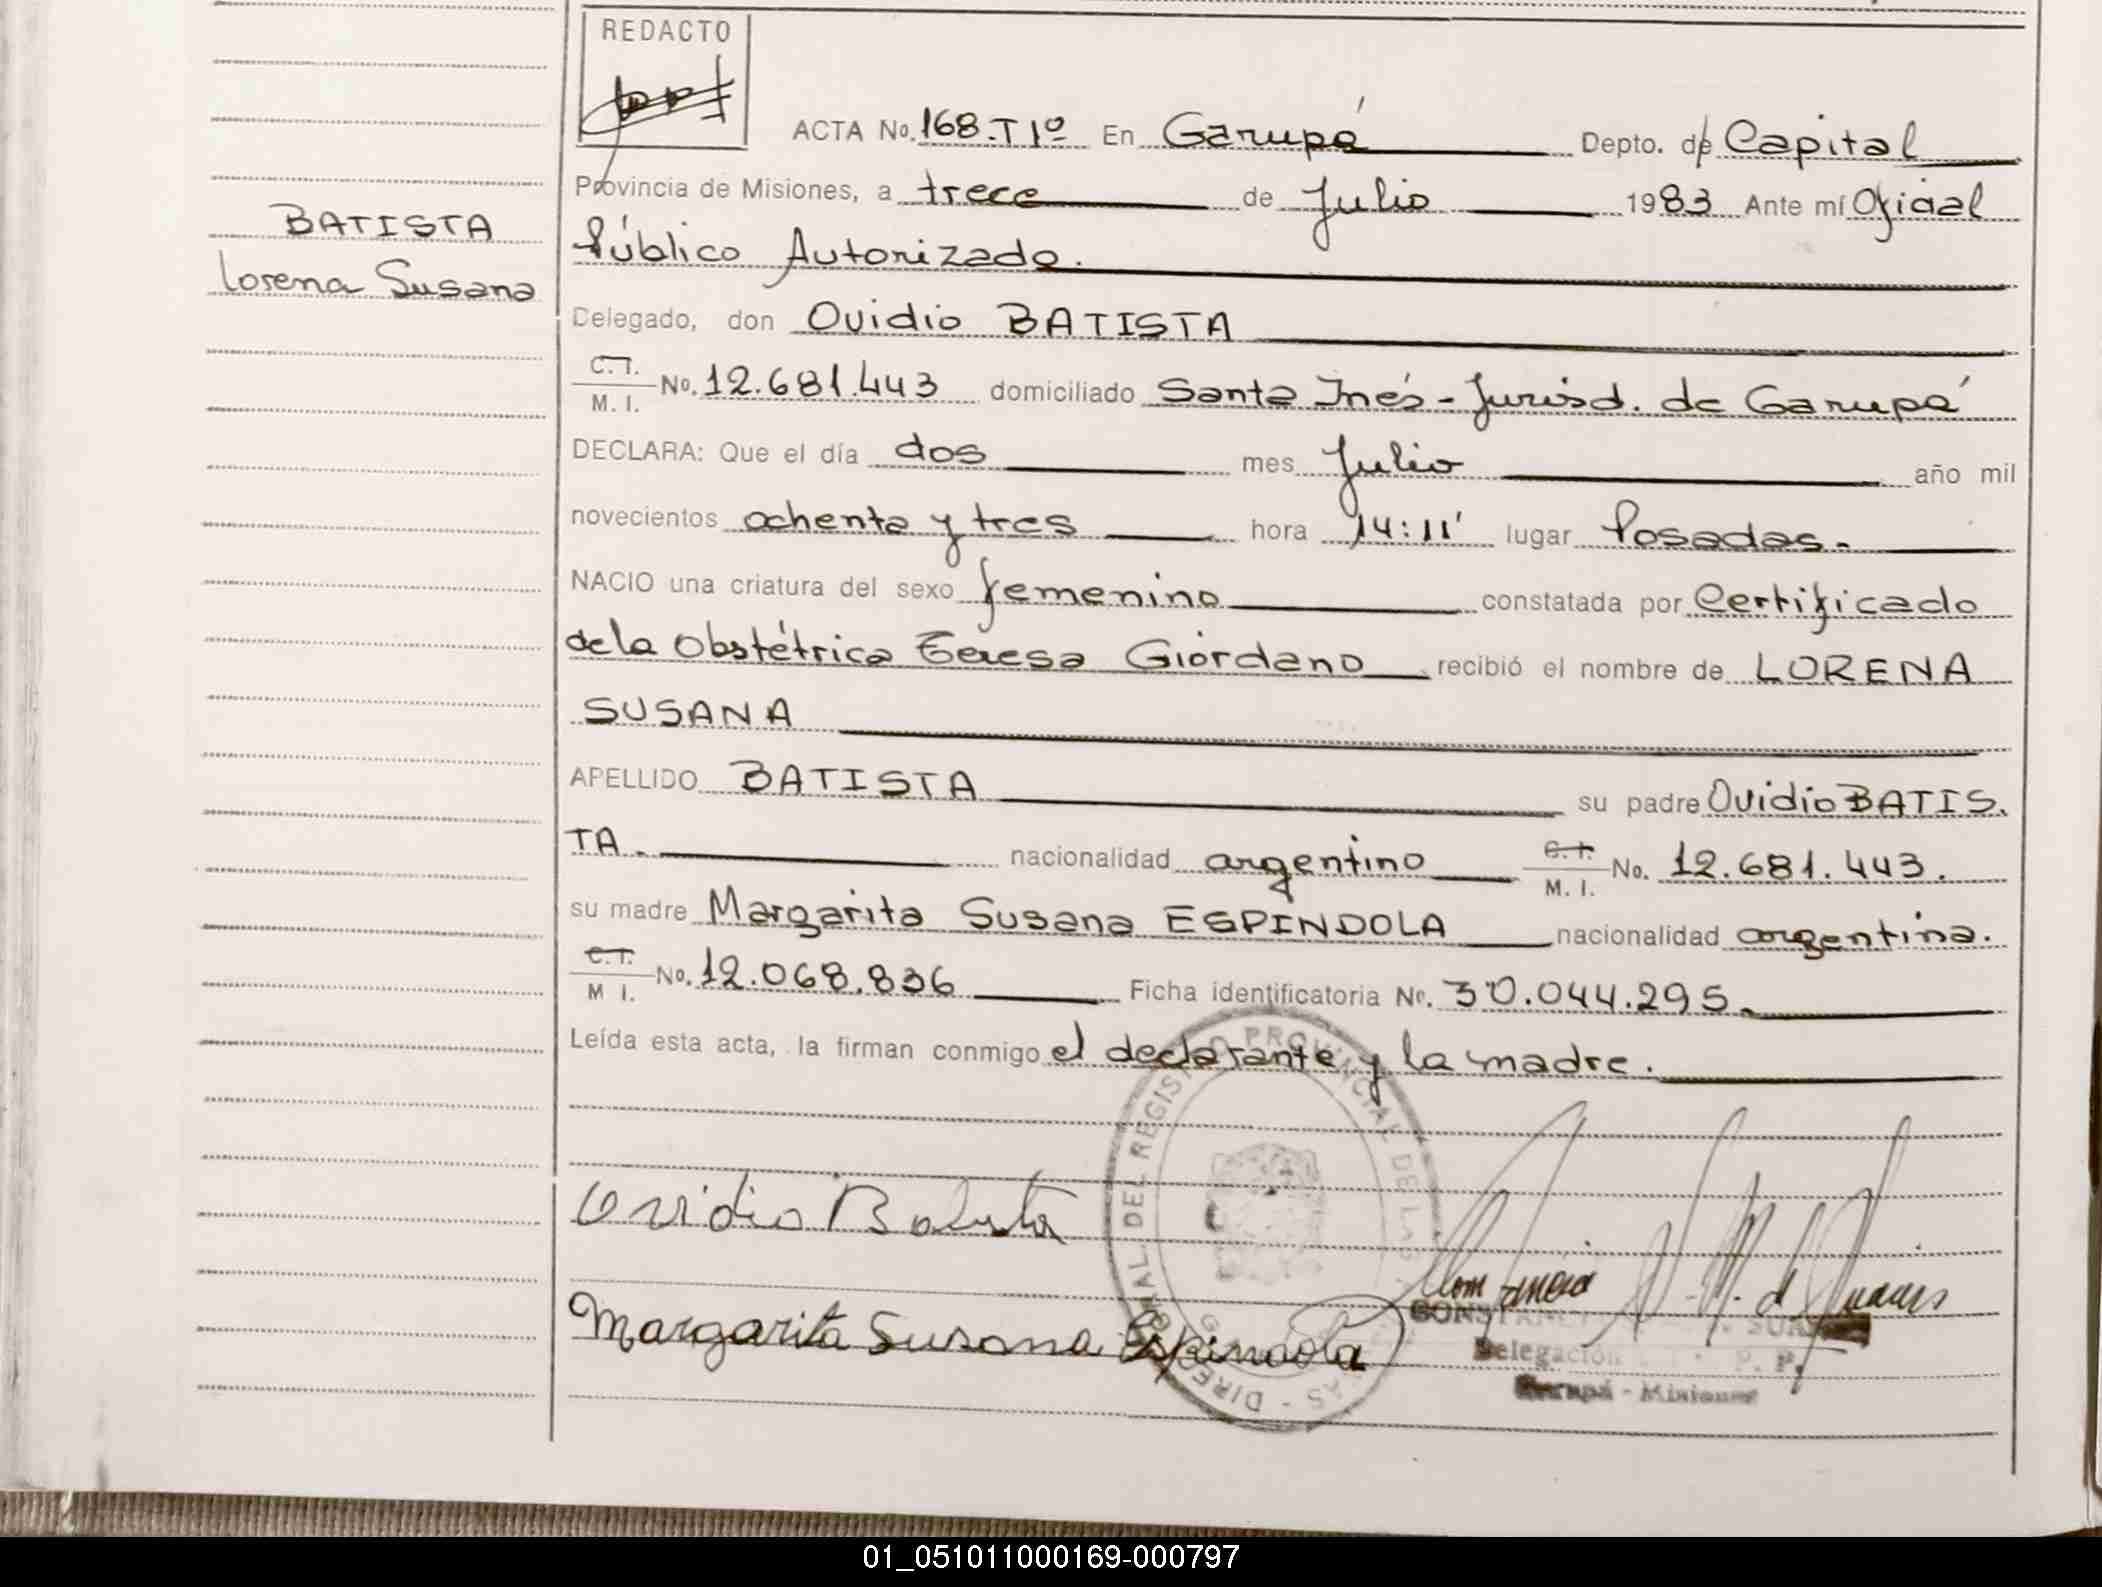 REDACTO
ACTA No. 168.T1º En Garupá Depto. de Capital
Provincia de Misiones, a trece de Julio 1983 Ante mí Oficial
Público Autorizado.
BATISTA
Lorena Susana
Delegado, don Ovidio BATISTA
C.I.
M. I. No. 12.681.443 domiciliado Santa Inés - Jurisd. de Garupá
DECLARA: Que el día dos mes Julio año mil
novecientos ochenta y tres hora 14:11' lugar Posadas.
NACIO una criatura del sexo femenino constatada por Certificado
de la Obstétrica Teresa Giordano recibió el nombre de LORENA
SUSANA
APELLIDO BATISTA su padre Ovidio BATIS.
TA. nacionalidad argentino C.I.
M. I. No. 12.681.443.
su madre Margarita Susana ESPINDOLA nacionalidad argentina.
C.I.
M I. No. 12.068.836 Ficha identificatoria No. 30.044.295.
Leída esta acta, la firman conmigo el declarante y la madre.
Ovidio Batista
Margarita Susana Espindola
DEL REGISTRO PROVINCIAL DE LAS
Delegación
Garupá - Misiones
01_051011000169-000797